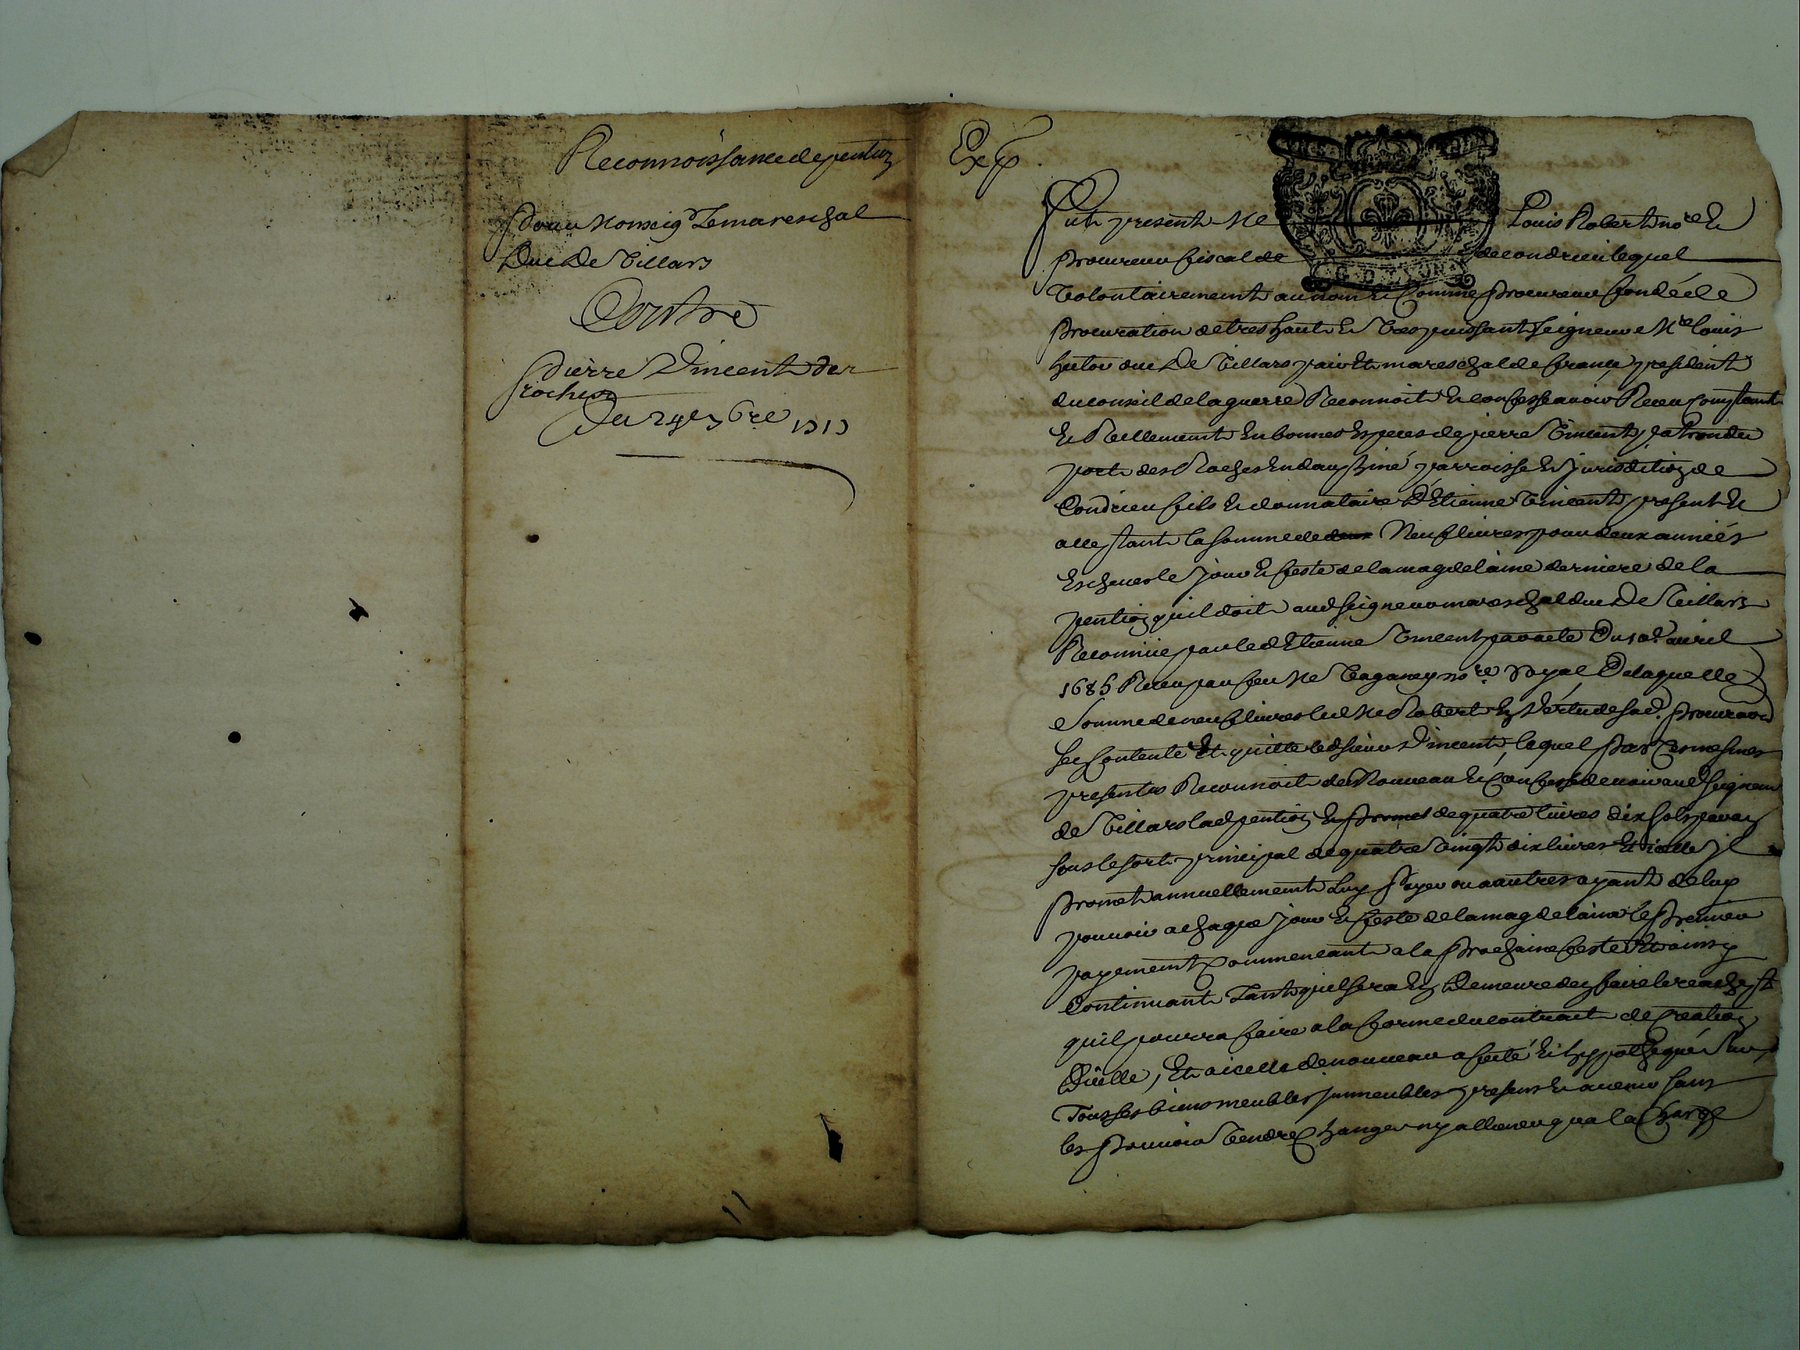 Reconnoissance de pention
Pour Monseigr Le mareschal
Duc De Villars
Contre
Pierre Vincent des
roches
Du 24e 9bre 1717
Exp.
Fut present Me Louis Robert nore Et
procureur fiscal de de condrieu lequel
Volontairement au nom Et Comme procureur fondé de
procuration de tres haut Et Tres puissant seigneur Mre louis
hector duc De Villars pair Et mareschal de france president
du conseil de la guerre Reconnoit Et confesse avoir Receu Comptant
Et Reellement En bonnes Especes de pierre Vincent patron du
port des Roches En dauphiné parroisse Et jurisdiction de
Condrieu fils Et donnataire D'Etienne Vincent present Et
acceptant la somme de Neuf livres pour deux années
Escheues le jour Et feste de la magdelaine derniere de la
pention quil doit aud seigneur mareschal duc De Villars
Reconnüe par led Etienne Vincent par acte Du 10e avril
1685 Receu par feu Me Vaganey nore Royal De laquelle
Somme de neuf livres led Me Robert En Vertu de sad. procuraon
se Contente Et quitte led sieur Vincent, lequel par Ces mesmes
presentes Reconnoit de Nouveau Et Confesse devoir aud seigneur
de Villars lad pention Et promet de quatre livres dix sols par an
sous le sort principal de quatre Vingt dix livres Et icelle jl
promet annuellement Luy payer ou a autres ayant de luy
pouvoir a chaque jour Et feste de la magdelaine le premier
payement Commencant a la prochaine feste Et ainsy
Continuant Tant quil sera En Demeure d'en faire le reachapt
quil pourra faire a la forme du contract de Creation
Dicelle, Et a icelle de nouveau afecté Et hyppothequé
Tous ses biens meubles jmmeubles presens Et avenir sans
les pouvoir Vendre Changer ny alliener qua la Charge